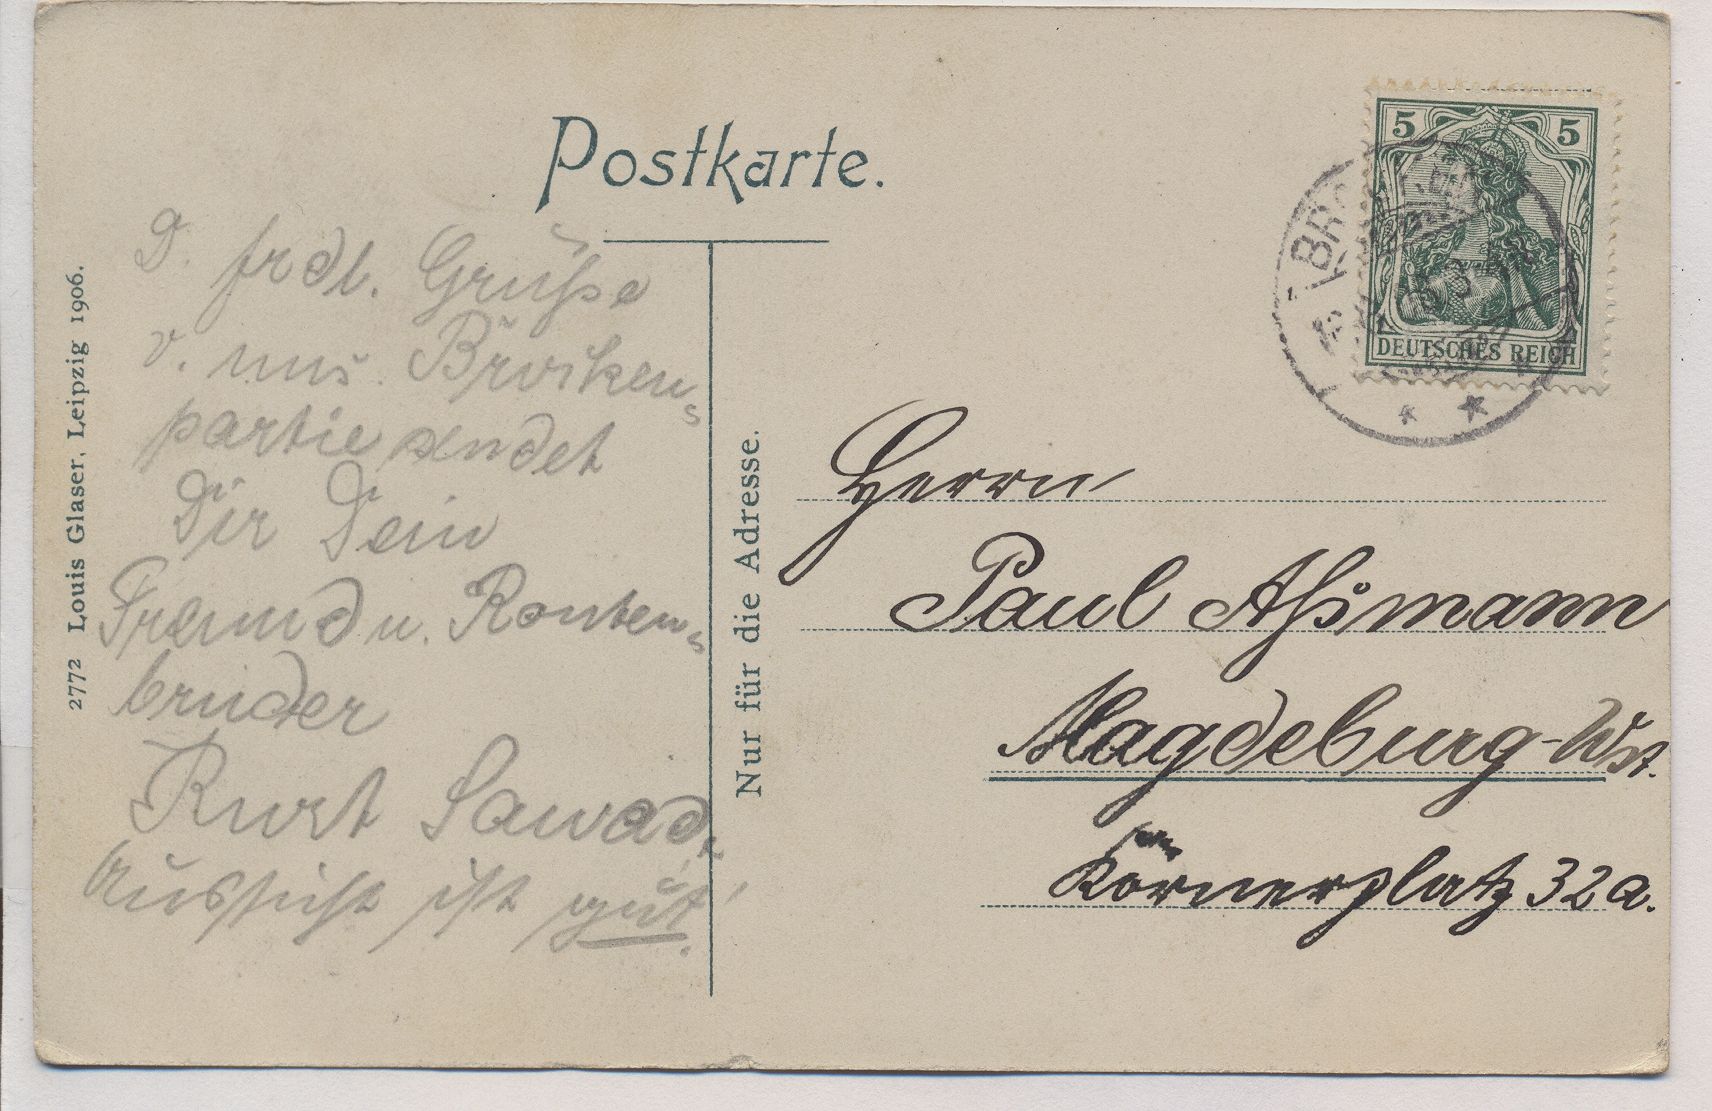 Postkarte.
D. frdl. Grüße
v. uns. Brocken-
partie sendet
Dir Dein
Freund u. Kouleur-
bruder
Kurt
Aussicht ist gut!
2772 Louis Glaser, Leipzig 1906.
Nur für die Adresse.
5 5
DEUTSCHES REICH
Herrn
Paul Aßmann
Magdeburg-Wst.
Körnerplatz 32a.